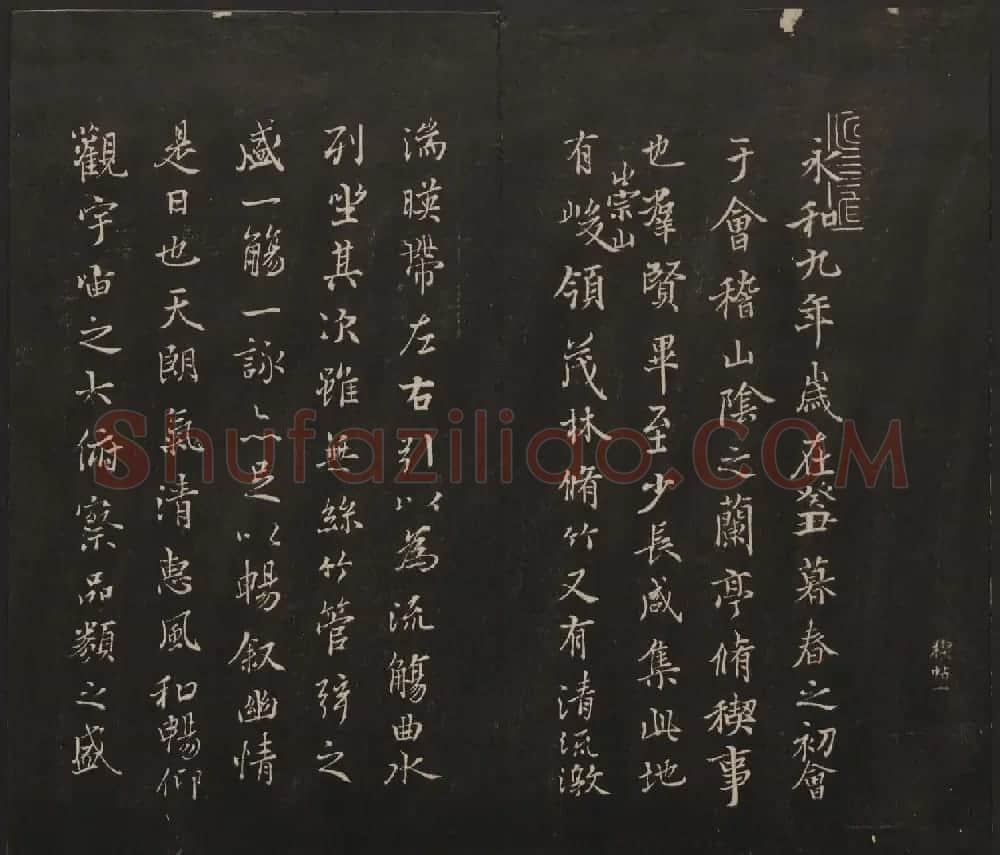 永和九年歲在癸丑暮春之初會
于會稽山陰之蘭亭脩稧事
也羣賢畢至少長咸集此地
有崇山峻領茂林脩竹又有清流激
湍暎帶左右引以為流觴曲水
列坐其次雖無絲竹管弦之
盛一觴一詠亦足以暢叙幽情
是日也天朗氣清惠風和暢仰
觀宇宙之大俯察品類之盛
稧帖一
Shufaziliao.COM